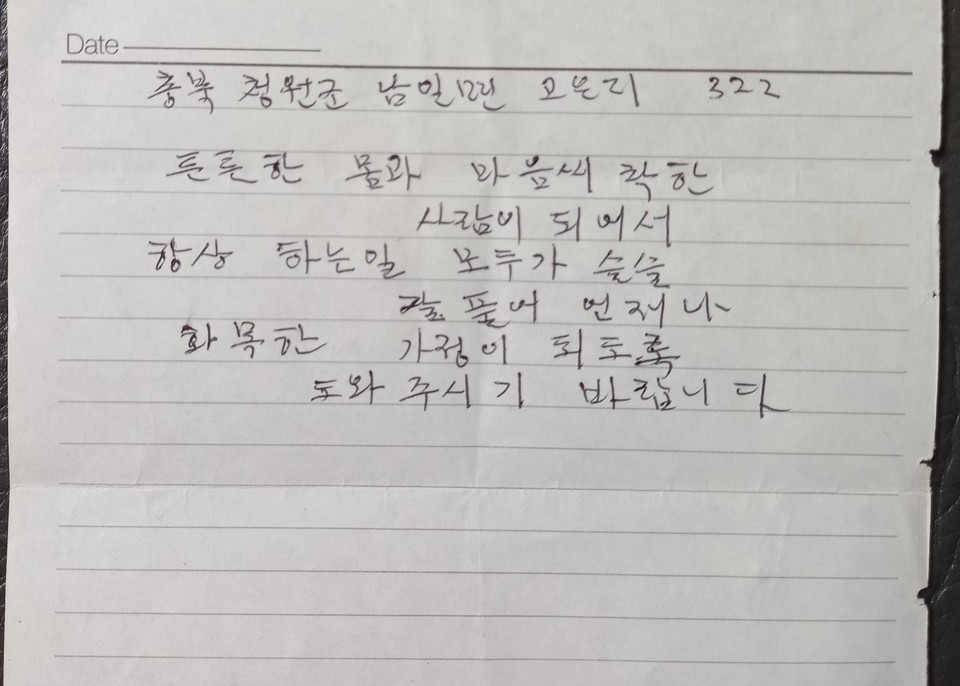 Date
충북 청원군 남일면 고은리 322
튼튼한 몸과 마음씨 착한
사람이 되어서
항상 하는일 모두가 술술
잘 풀어 언제나
화목한 가정이 되도록
도와 주시기 바랍니다